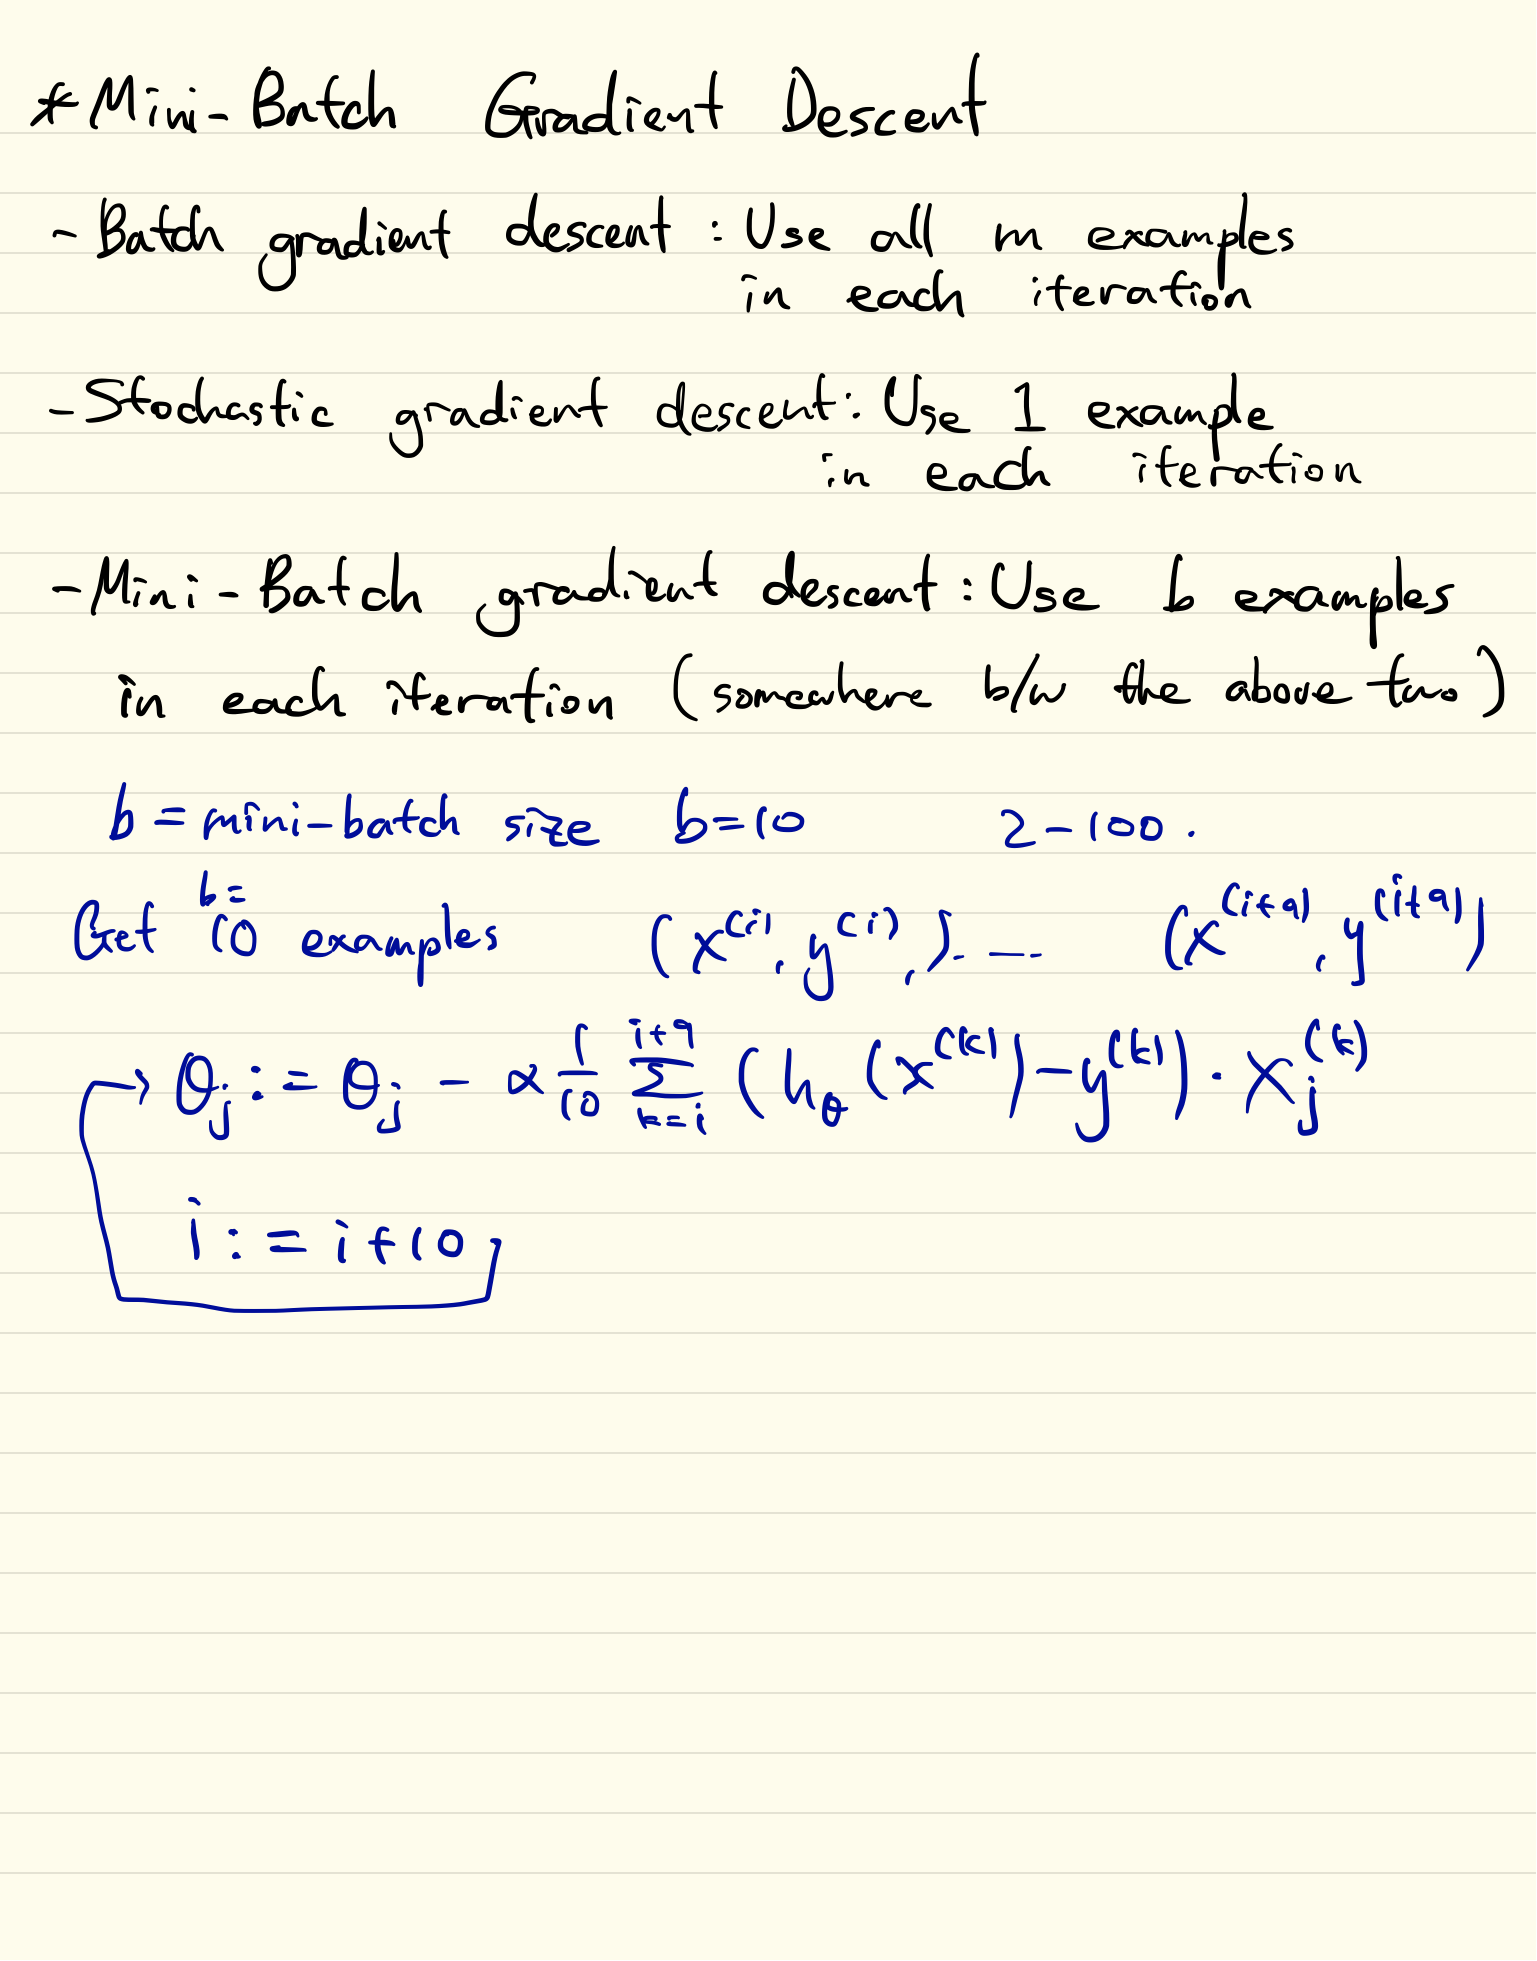 * Mini-Batch Gradient Descent
- Batch gradient descent : Use all m examples
in each iteration
- Stochastic gradient descent : Use 1 example
in each iteration
- Mini-Batch gradient descent : Use b examples
in each iteration (somewhere b/w the above two)
b = mini-batch size b=10 2-100.
b=
Get 10 examples (x^(i), y^(i),). -- (x^(i+9), y^(i+9))
→ θ_j := θ_j - α 1/10 Σ_{k=i}^{i+9} (h_θ(x^(k)) - y^(k)) · x_j^(k)
i := i+10